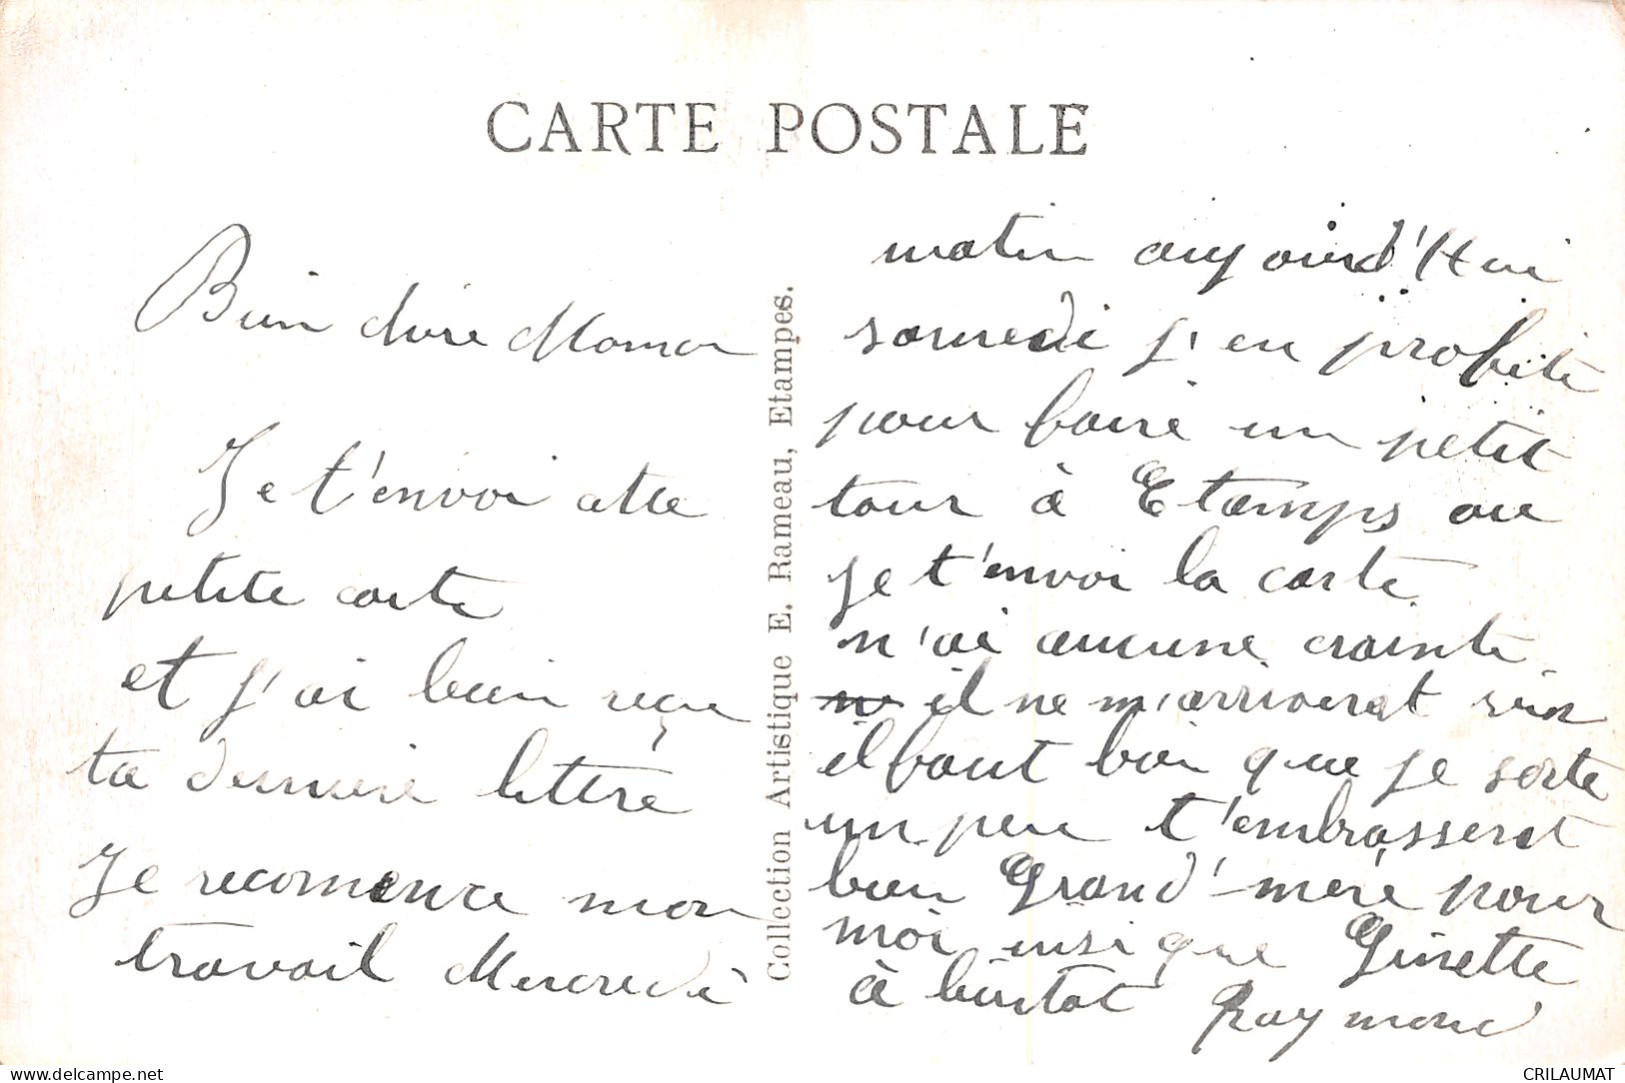 CARTE POSTALE
Bien chère Maman
Je t'envoi cette
petite carte
et j'ai bien reçu
ta dernière lettre
Je recomence mon
travail Mercredi
Collection Artistique E. Rameau, Etampes.
matin aujourd'Hui
samedi j'en profite
pour faire un petit
tour à Etamps ou
je t'envoi la carte
n'ai aucune crainte
il ne m'arriverat rien
il faut bien que je sorte
un peu t'embrasserat
bien Grand'-mère pour
moi insi que Ginette
à bientot Raymond
delcampe.net
CRILAUMAT